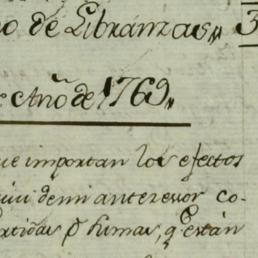 o de Libranzas,, 3
e Año de 1769,,
ue importan los efectos
de mi antecesor co-
artidas o sumas, q están